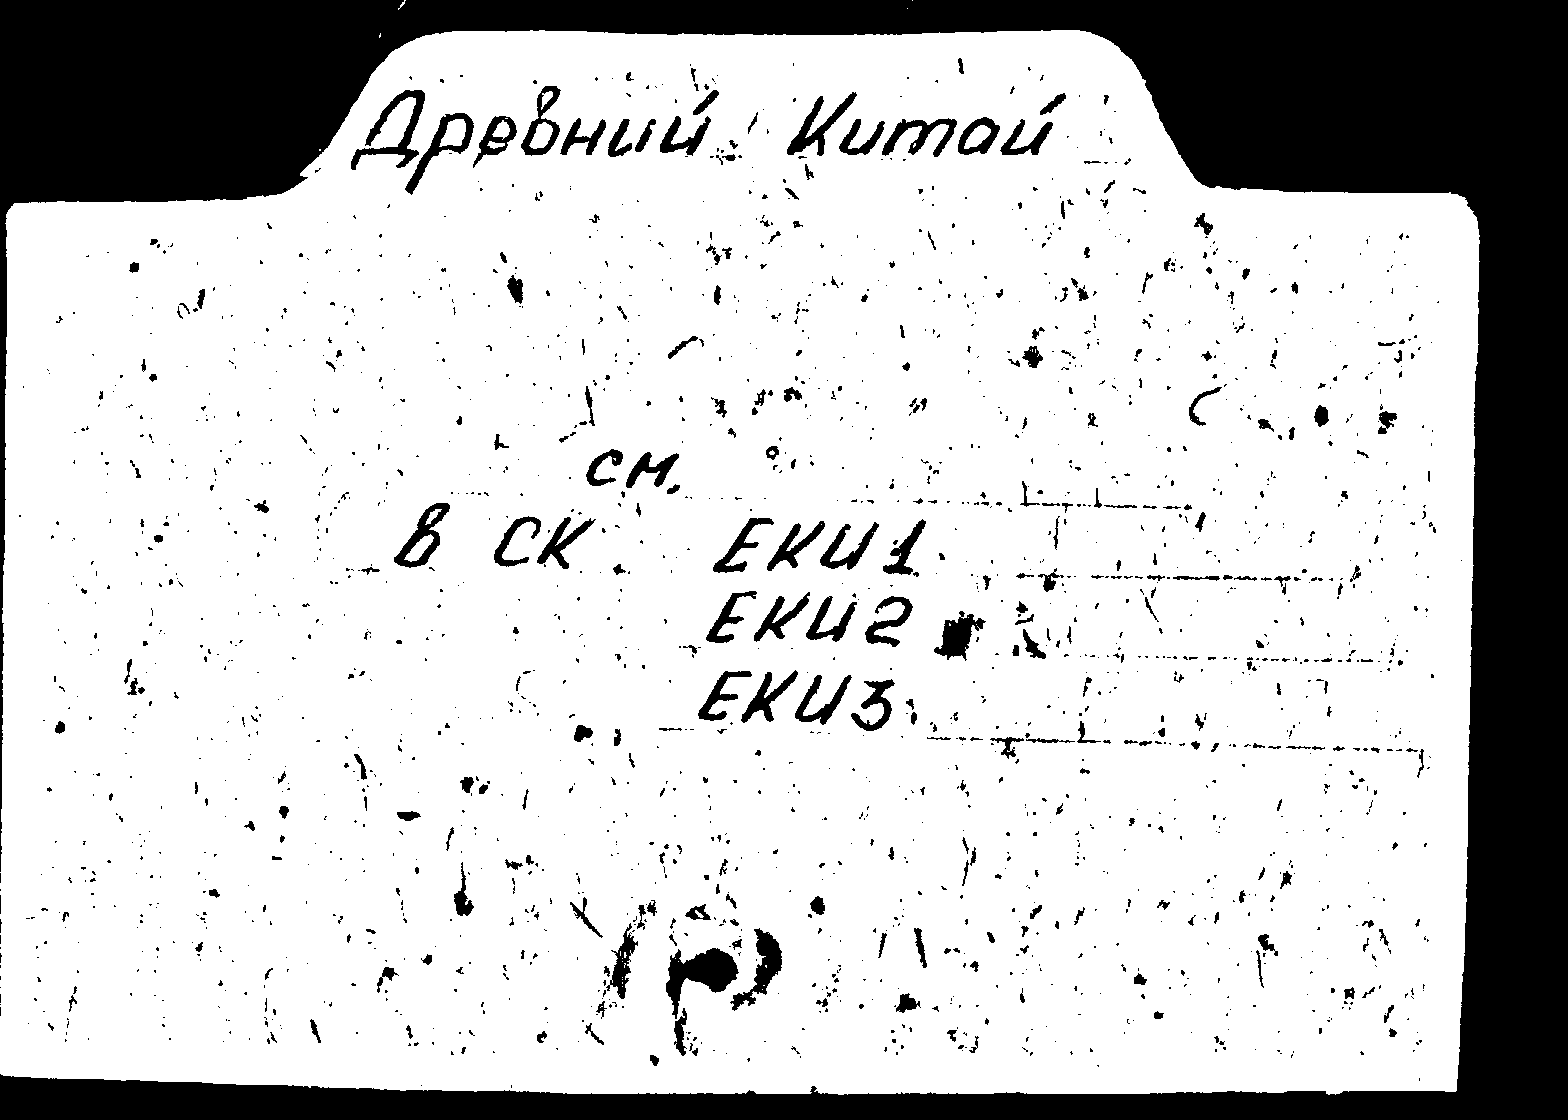 Древний Китай
см.
в СК ЕКИ1
ЕКИ2
ЕКИ3